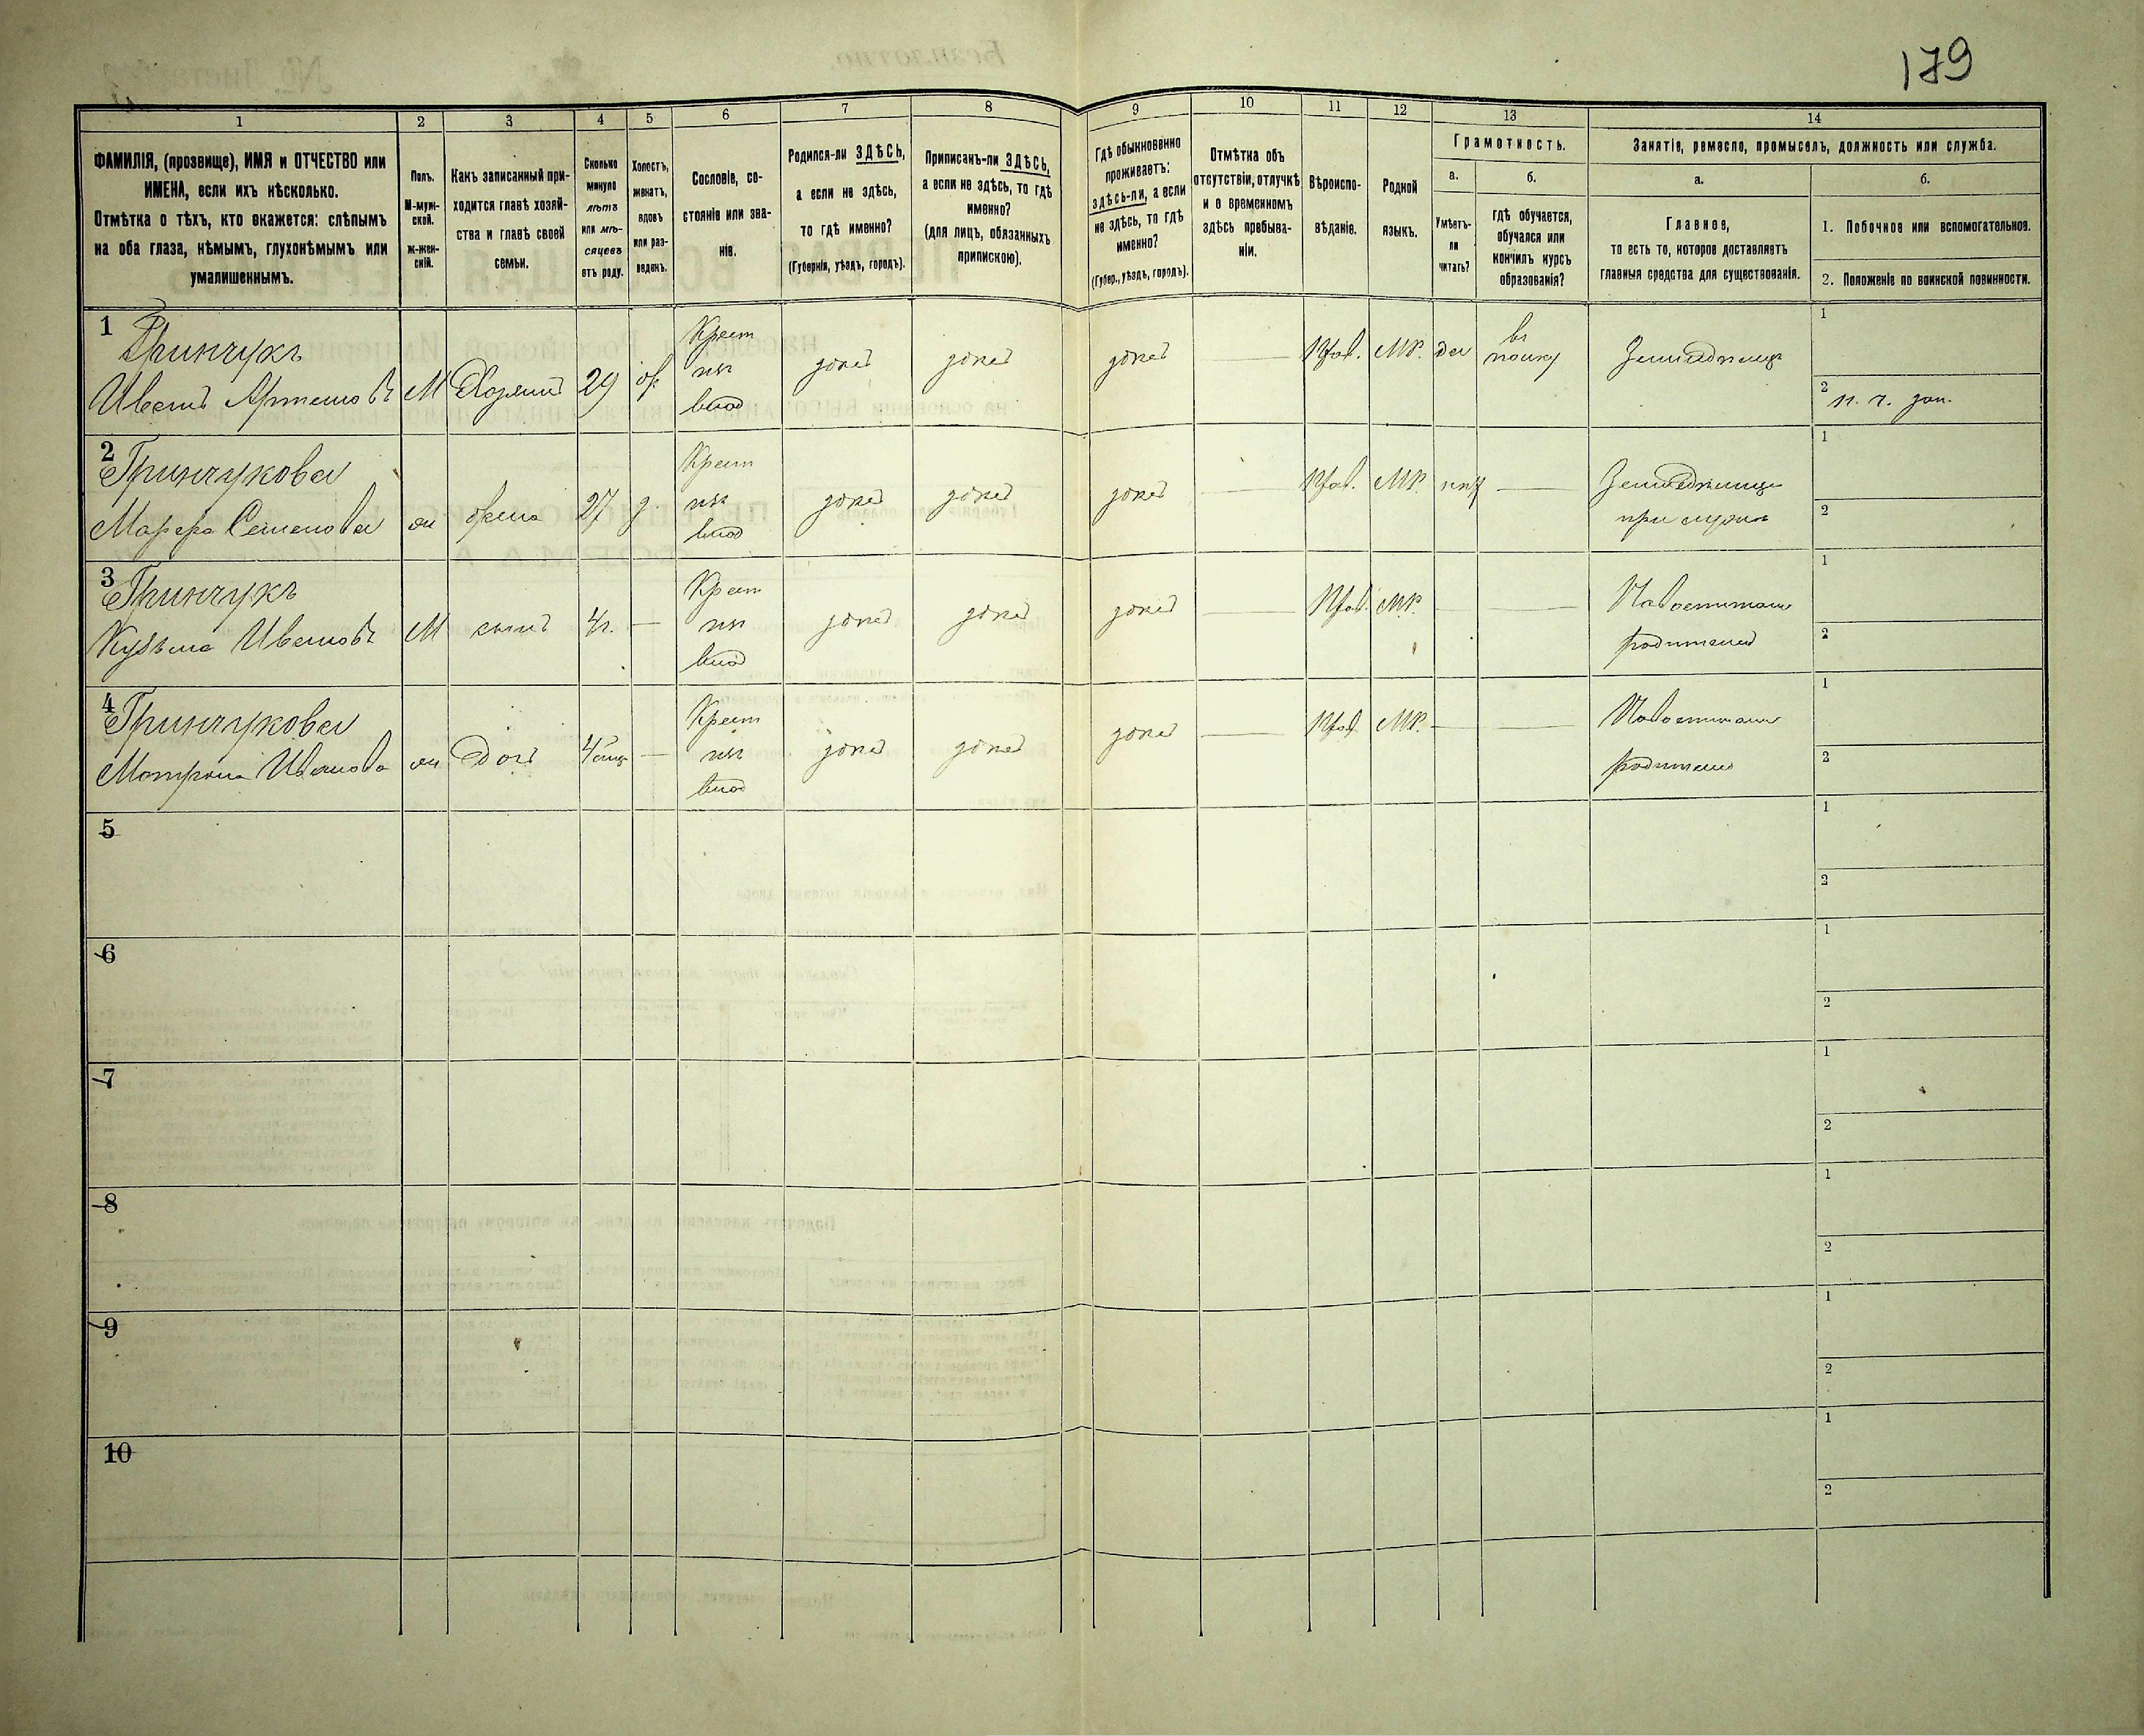 179
1
2
3
4
5
6
7
8
9
10
11
12
13
14
ФАМИЛІЯ, (прозвище), ИМЯ и ОТЧЕСТВО или
ИМЕНА, если ихъ нѣсколько.
Отмѣтка о тѣхъ, кто окажется: слѣпымъ
на оба глаза, нѣмымъ, глухонѣмымъ или
умалишеннымъ.
Полъ.
М-муж-
ской.
Ж-жен-
скій.
Какъ записанный при-
ходится главѣ хозяй-
ства и главѣ своей
семьи.
Сколько
минуло
лѣтъ
или мѣ-
сяцевъ
отъ роду.
Холостъ,
женатъ,
вдовъ
или раз-
веденъ.
Сословіе, со-
стояніе или зва-
ніе.
Родился-ли ЗДѢСЬ,
а если не здѣсь,
то гдѣ именно?
(Губернія, уѣздъ, городъ).
Приписанъ-ли ЗДѢСЬ,
а если не здѣсь, то гдѣ
именно?
(для лицъ, обязанныхъ
припискою).
Гдѣ обыкновенно
проживаетъ:
здѣсь-ли, а если
не здѣсь, то гдѣ
именно?
(Губер., уѣздъ, городъ).
Отмѣтка объ
отсутствіи, отлучкѣ
и о временномъ
здѣсь пребыва-
ніи.
Вѣроиспо-
вѣданіе.
Родной
языкъ.
Грамотность.
а.
Умѣетъ-
ли
читать?
б.
гдѣ обучается,
обучался или
кончилъ курсъ
образованія?
Занятіе, ремесло, промыселъ, должность или служба.
а.
Главное,
то есть то, которое доставляетъ
главныя средства для существованія.
б.
1. Побочное или вспомогательное.
2. Положеніе по воинской повинности.
1
Гринчукъ
Иванъ Артемовъ
М
Хозяинъ
29
ж
Крест
изъ
влад
здѣсь
здѣсь
здѣсь
Прав.
МР.
да
въ
полку
Земледѣлецъ
1
2
2
Гринчукова
Марфа Семенова
ж
жена
27
з.
Крест
изъ
влад
здѣсь
здѣсь
здѣсь
Прав.
МР.
нѣт
Земледѣлица
при мужѣ
1
2
3
Гринчукъ
Кузьма Ивановъ
М
сынъ
4г.
Крест
изъ
влад
здѣсь
здѣсь
здѣсь
Прав.
МР.
родителей
1
2
4
Гринчукова
Матрона Иванова
ж
Дочь
Крест
изъ
влад
здѣсь
здѣсь
здѣсь
Прав.
МР.
родителей
1
2
5
1
2
6
1
2
7
1
2
8
1
2
9
1
2
10
1
2